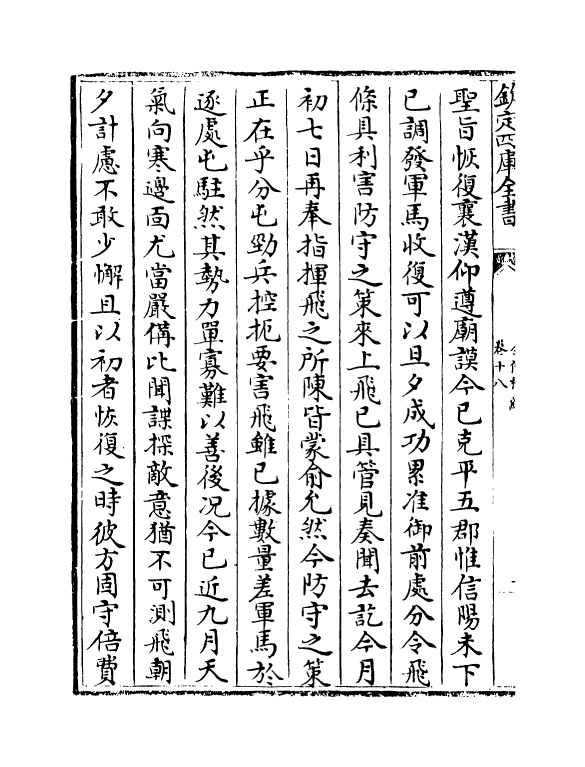 欽定四庫全書
卷十八
聖旨恢復襄漢仰遵廟謨今已克平五郡惟信陽未下
已調發軍馬收復可以旦夕成功累准御前處分令飛
條具利害防守之策來上飛已具管見奏聞去訖今月
初七日再奉指揮飛之所陳皆蒙俞允然今防守之策
正在乎分屯勁兵控扼要害飛雖已據數量差軍馬於
逐處屯駐然其勢力單寡難以善後况今已近九月天
氣向寒邊面尤當嚴備比聞諜探敵意猶不可測飛朝
夕計慮不敢少懈且以初者恢復之時彼方固守倍費